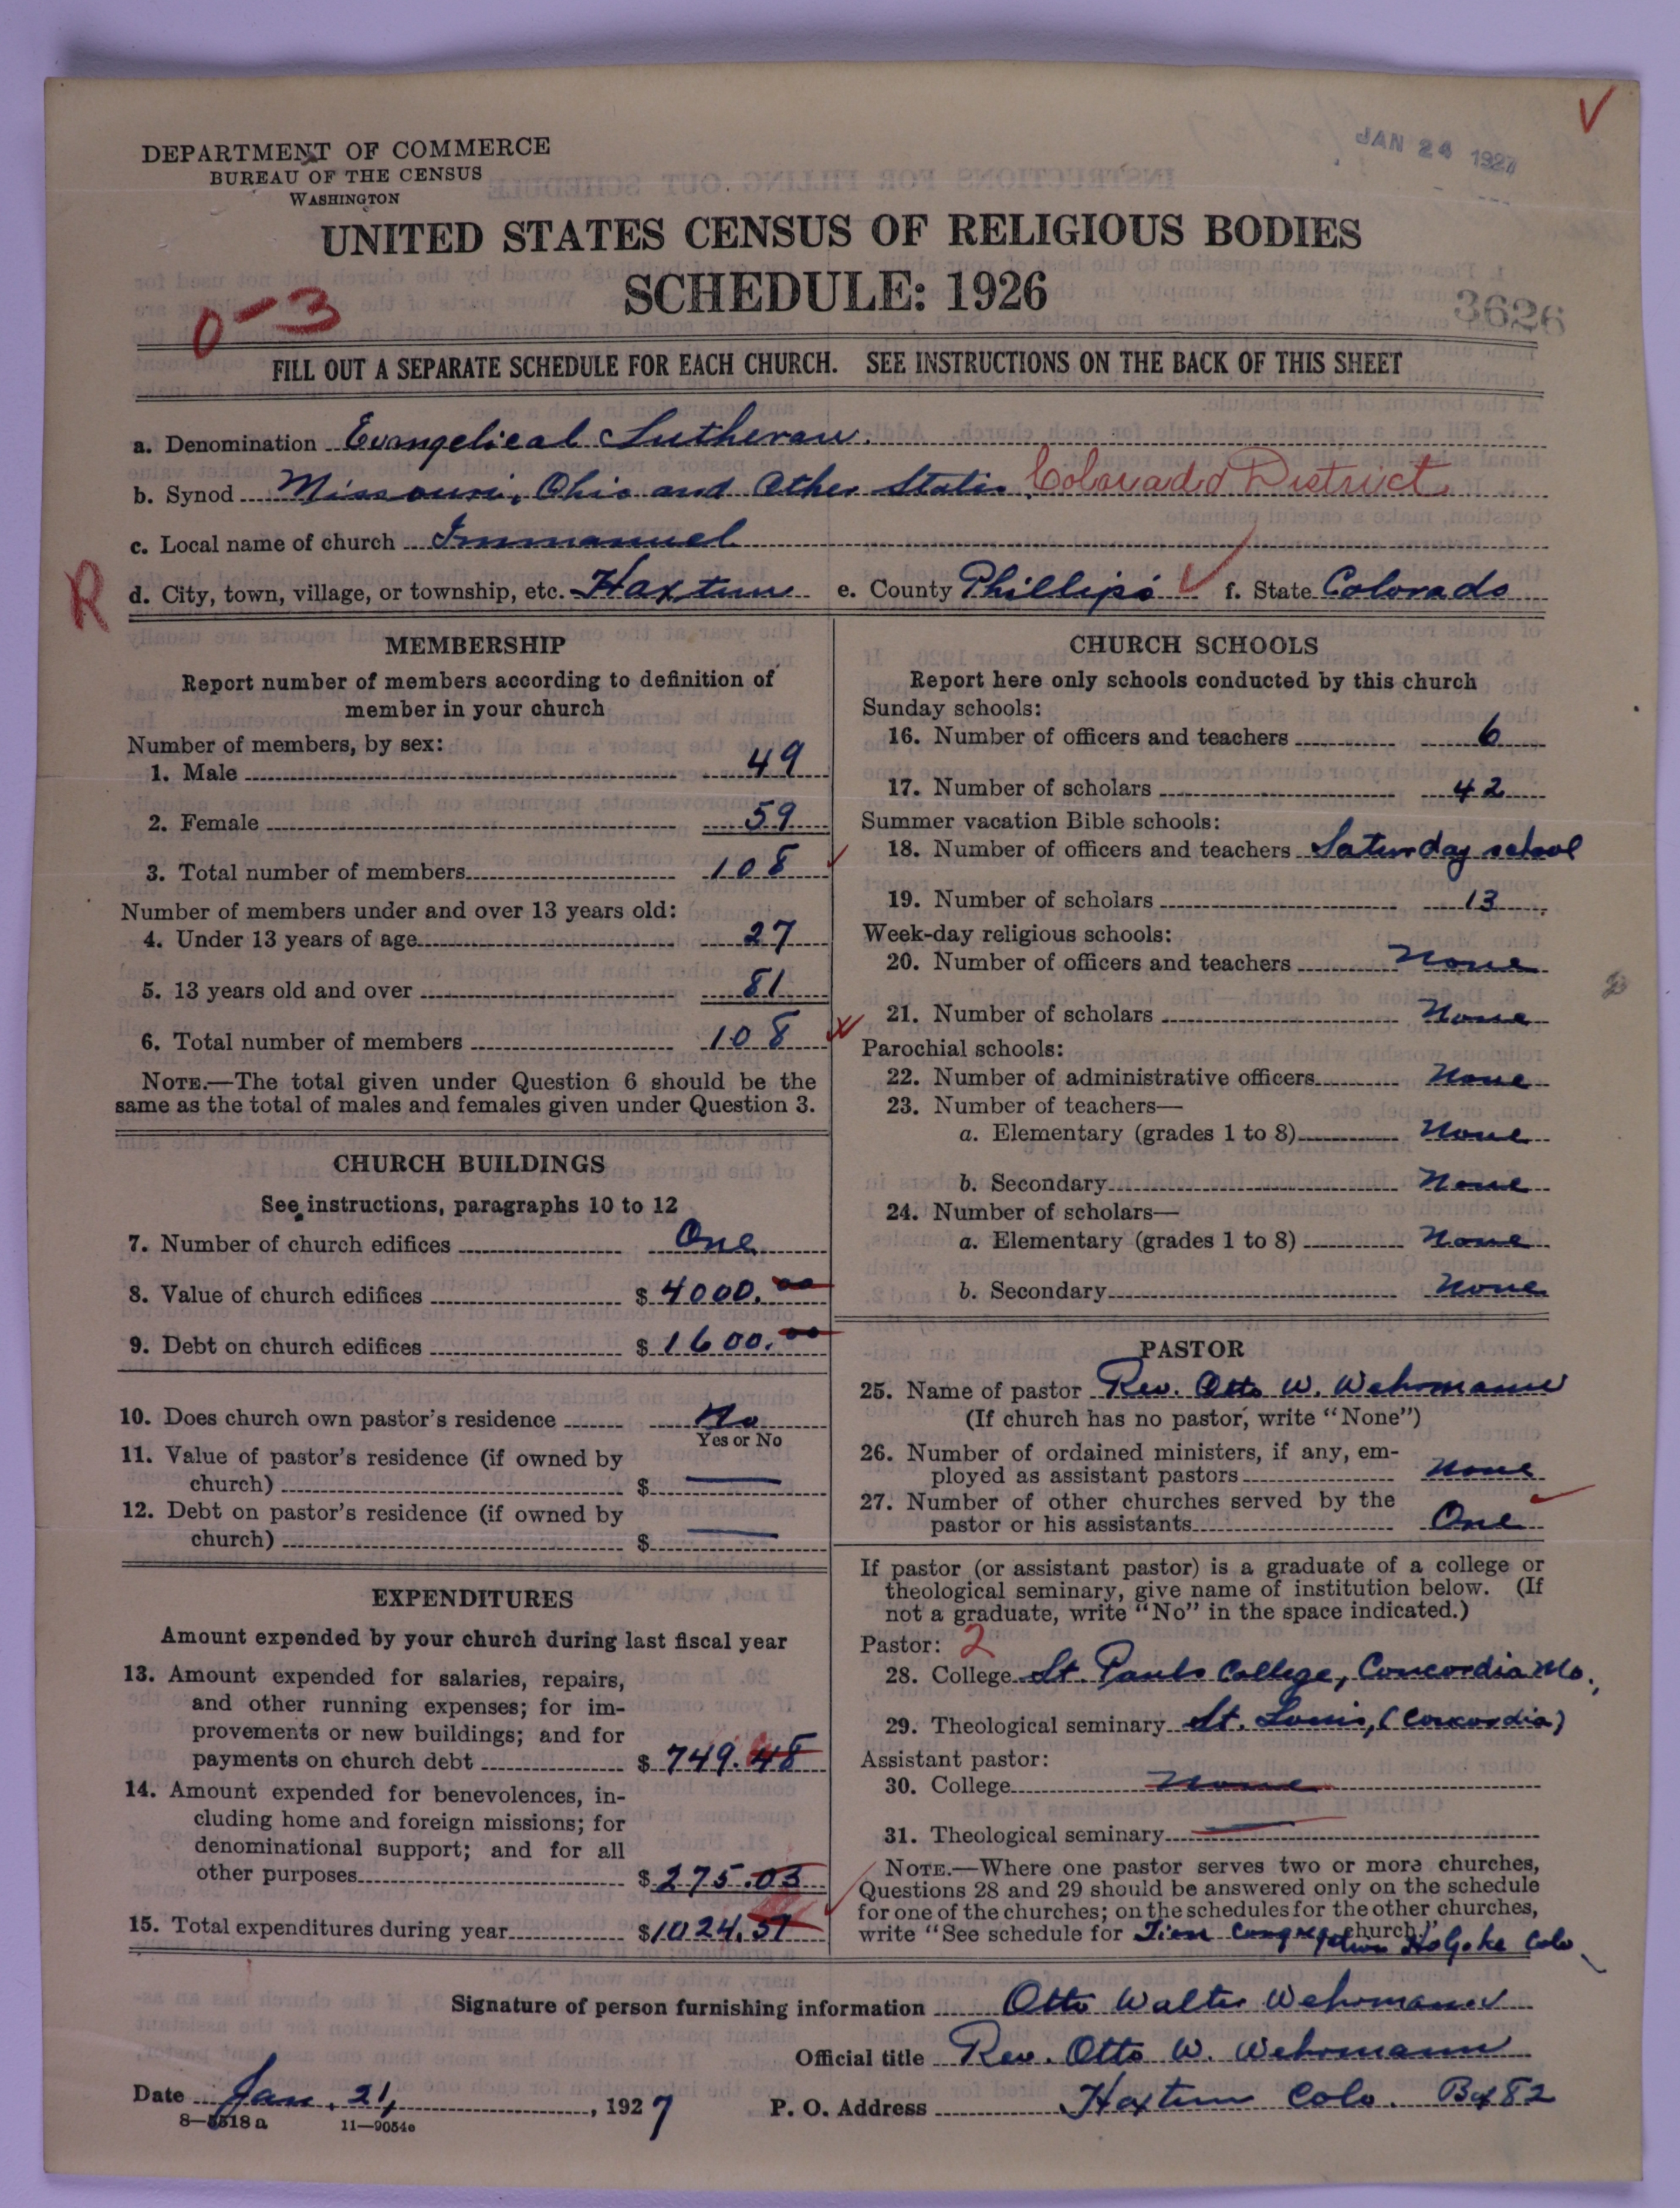 JAN 24 1927
DEPARTMENT OF COMMERCE
BUREAU OF THE CENSUS
WASHINGTON
UNITED STATES CENSUS OF RELIGIOUS BODIES
SCHEDULE: 1926
0-3
3626
FILL OUT A SEPARATE SCHEDULE FOR EACH CHURCH. SEE INSTRUCTIONS ON THE BACK OF THIS SHEET
a. Denomination Evangelical Lutheran
b. Synod Missouri, Ohio and Other States Colorado District
c. Local name of church Immanuel
R
d. City, town, village, or township, etc. Haxtun e. County Phillips f. State Colorado
MEMBERSHIP
Report number of members according to definition of
member in your church
Number of members, by sex:
1. Male 49
2. Female 59
3. Total number of members 108
Number of members under and over 13 years old:
4. Under 13 years of age 27
5. 13 years old and over 81
6. Total number of members 108
NOTE.—The total given under Question 6 should be the
same as the total of males and females given under Question 3.
CHURCH BUILDINGS
See instructions, paragraphs 10 to 12
7. Number of church edifices One
8. Value of church edifices $ 4000.00
9. Debt on church edifices $ 1600.00
10. Does church own pastor's residence No
Yes or No
11. Value of pastor's residence (if owned by
church) $ —
12. Debt on pastor's residence (if owned by
church) $ —
EXPENDITURES
Amount expended by your church during last fiscal year
13. Amount expended for salaries, repairs,
and other running expenses; for im-
provements or new buildings; and for
payments on church debt $ 749.48
14. Amount expended for benevolences, in-
cluding home and foreign missions; for
denominational support; and for all
other purposes $ 275.03
15. Total expenditures during year $1024.51
CHURCH SCHOOLS
Report here only schools conducted by this church
Sunday schools:
16. Number of officers and teachers 6
17. Number of scholars 42
Summer vacation Bible schools:
18. Number of officers and teachers Saturday school
19. Number of scholars 13
Week-day religious schools:
20. Number of officers and teachers None
21. Number of scholars None
Parochial schools:
22. Number of administrative officers None
23. Number of teachers—
a. Elementary (grades 1 to 8) None
b. Secondary None
24. Number of scholars—
a. Elementary (grades 1 to 8) None
b. Secondary None
PASTOR
25. Name of pastor Rev. Otto W. Wehrmann
(If church has no pastor, write "None")
26. Number of ordained ministers, if any, em-
ployed as assistant pastors None
27. Number of other churches served by the
pastor or his assistants One
If pastor (or assistant pastor) is a graduate of a college or
theological seminary, give name of institution below. (If
not a graduate, write "No" in the space indicated.)
Pastor: 2
28. College St. Pauls College, Concordia Mo.,
29. Theological seminary St. Louis, (Concordia)
Assistant pastor:
30. College None
31. Theological seminary —
NOTE.—Where one pastor serves two or more churches,
Questions 28 and 29 should be answered only on the schedule
for one of the churches; on the schedules for the other churches,
write "See schedule for Zion Congregation church." Holyoke Colo
Signature of person furnishing information Otto Walter Wehrmann
Official title Rev. Otto W. Wehrmann
Date Jan. 21, 1927 P. O. Address Haxtun Colo. Bx 82
8—5518 a 11—9054e